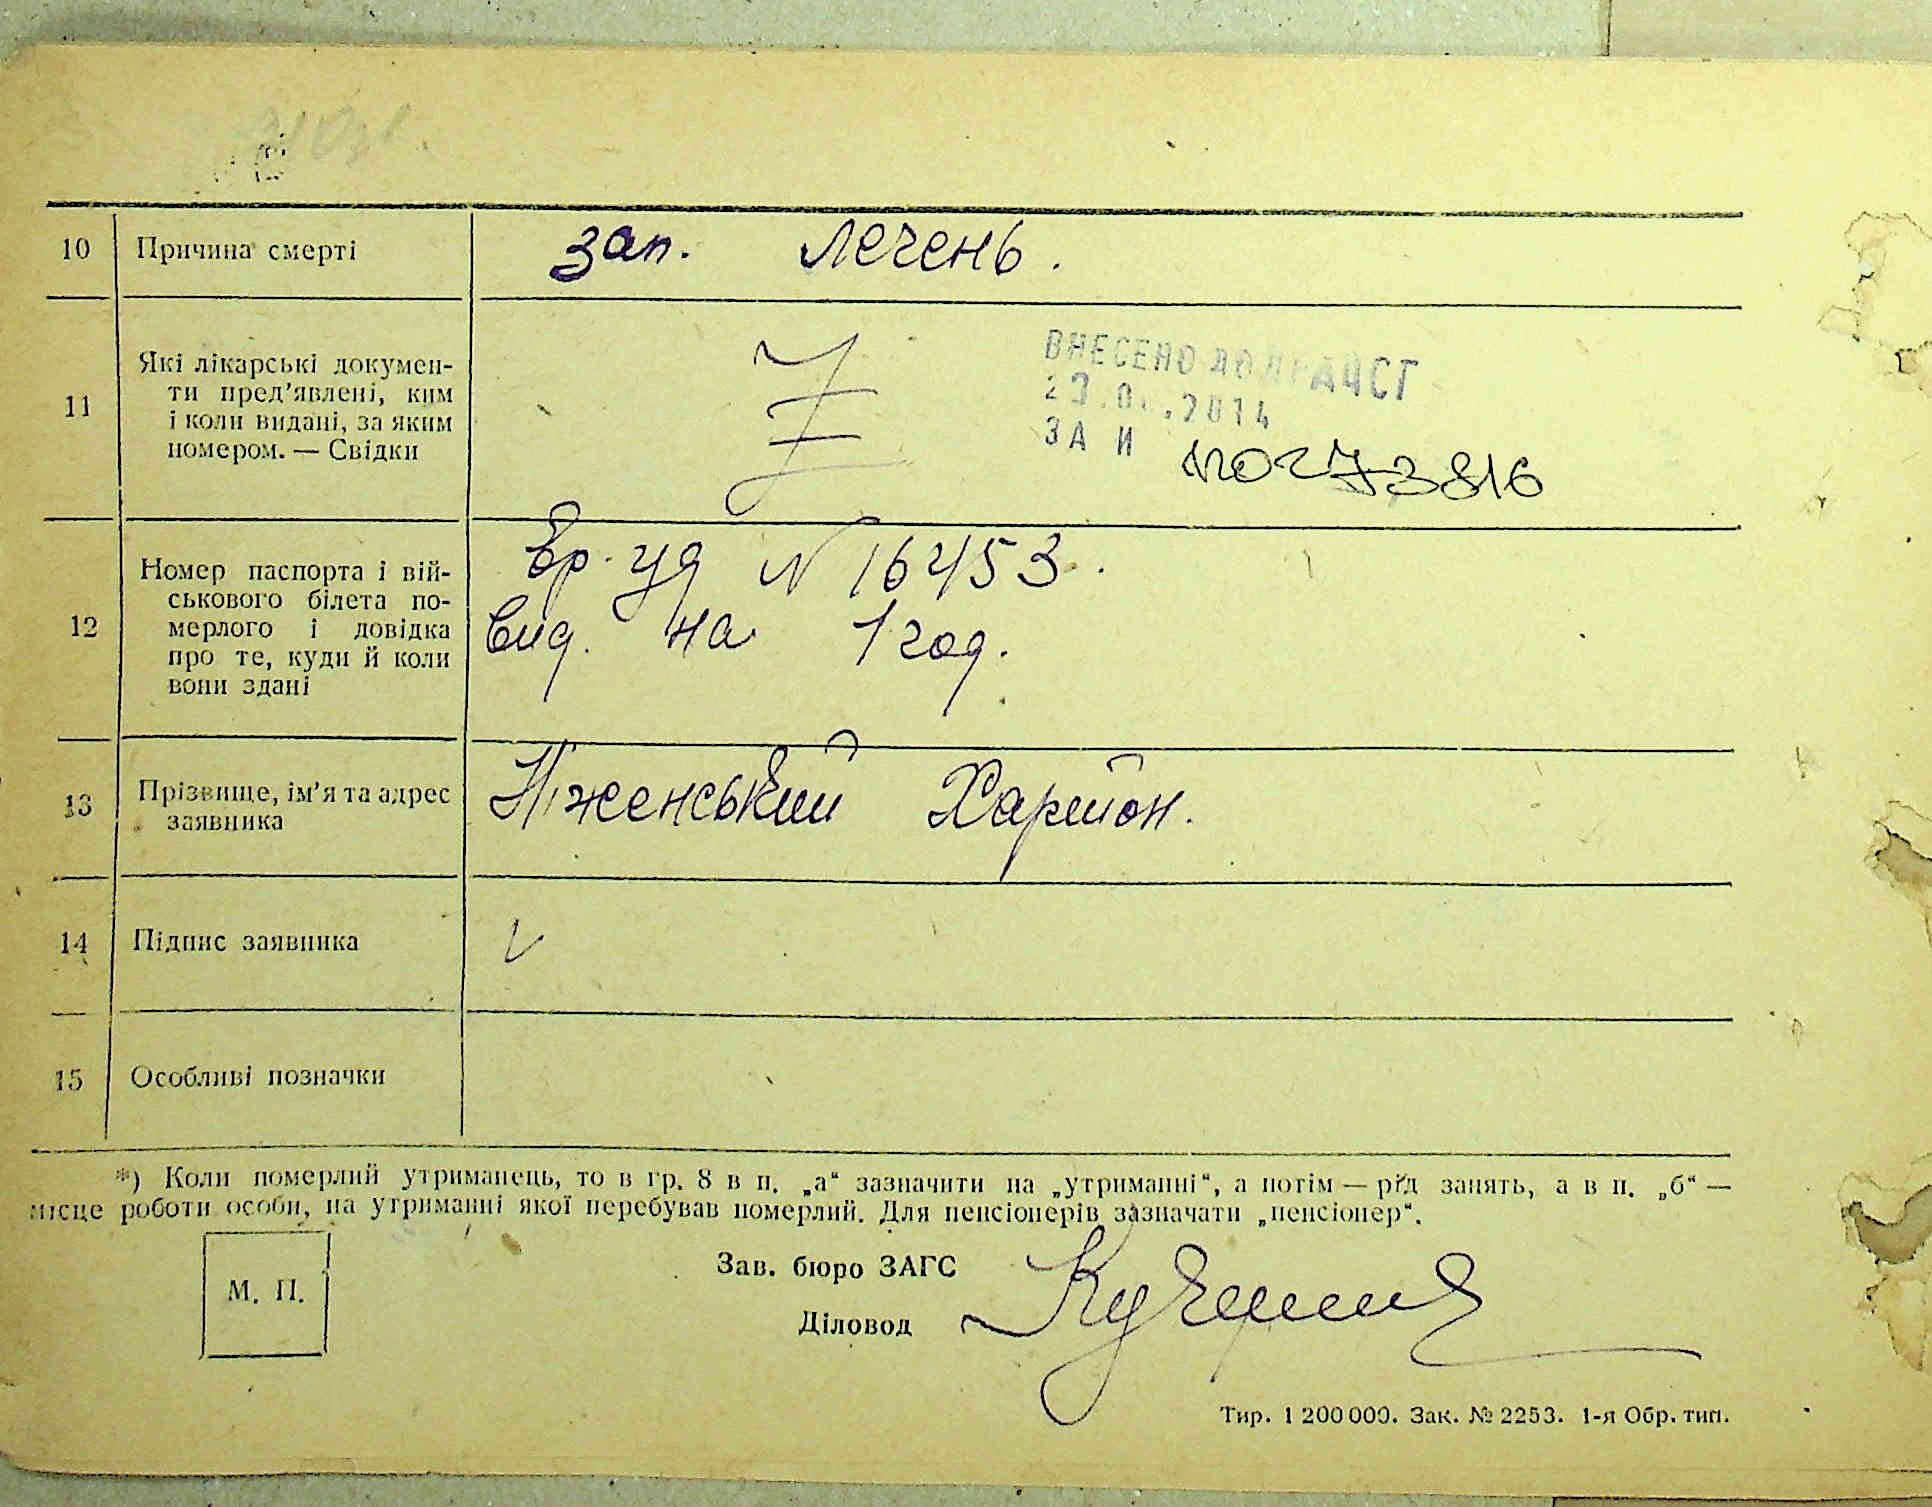 10 Причина смерті зап. легень.
11 Які лікарські докумен-
ти пред'явлені, ким
і коли видані, за яким
номером. — Свідки
ВНЕСЕНО ДО ДРАЦСГ
2014
ЗА №
0273816
12 Номер паспорта і вій-
ськового білета по-
мерлого і довідка
про те, куди й коли
вони здані
Вр. уд N 16453.
вид. на 1 год.
13 Прізвище, ім'я та адрес
заявника
Ніженський Харитон.
14 Підпис заявника
15 Особливі позначки
*) Коли померлий утриманець, то в гр. 8 в п. „а“ зазначити на „утриманні“, а потім — рід занять, а в п. „б“ —
місце роботи особи, на утриманні якої перебував померлий. Для пенсіонерів зазначати „пенсіонер“.
М. П.
Зав. бюро ЗАГС
Діловод
Тир. 1 200 000. Зак. № 2253. 1-я Обр. тип.